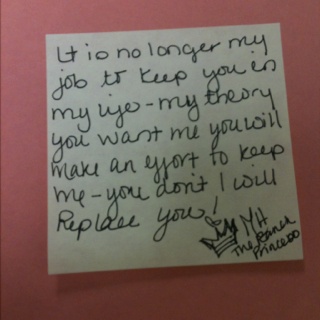 It is no longer my
job to keep you in
my life - my theory
you want me you will
make an effort to keep
me - you don't I will
Replace you!
MH
The Ranch
Princess